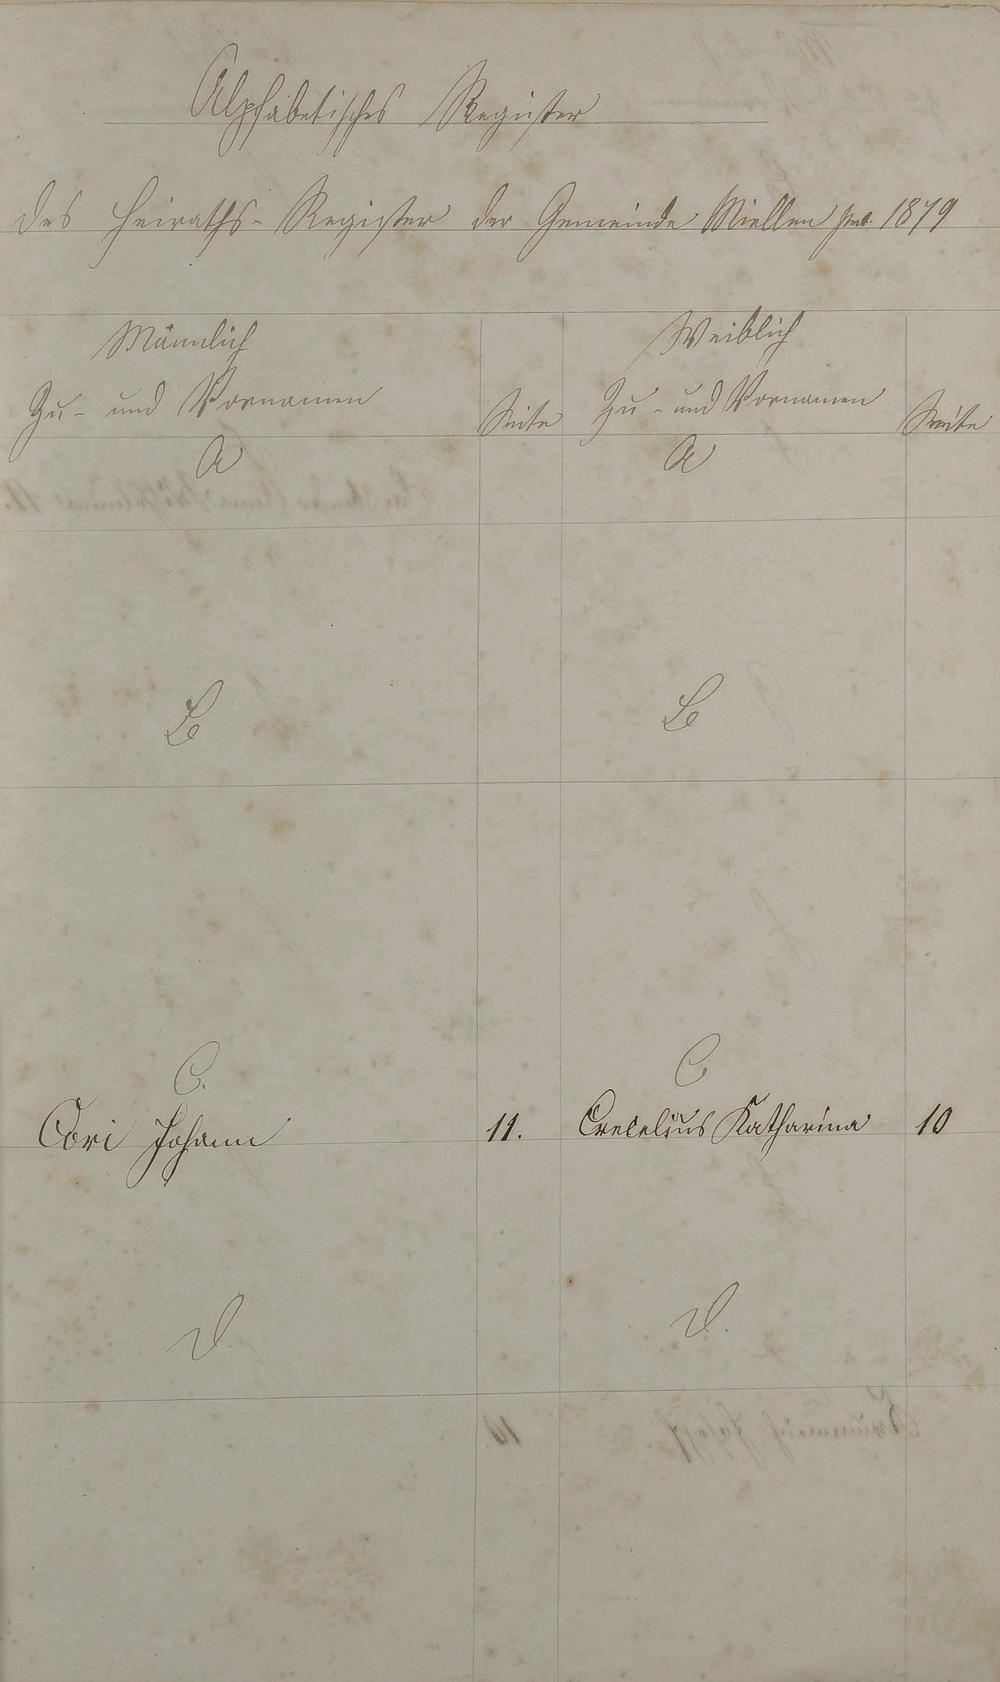 Alphabetisches Register
des Heiraths-Register der Gemeinde Miellen pro 1879
Männlich
Weiblich
Zu- und Vornamen
Seite
Zu- und Vornamen
Seite
A
A
B
B
C.
C
Cori Johann
11.
Crecelius Katharina
10
D.
D.